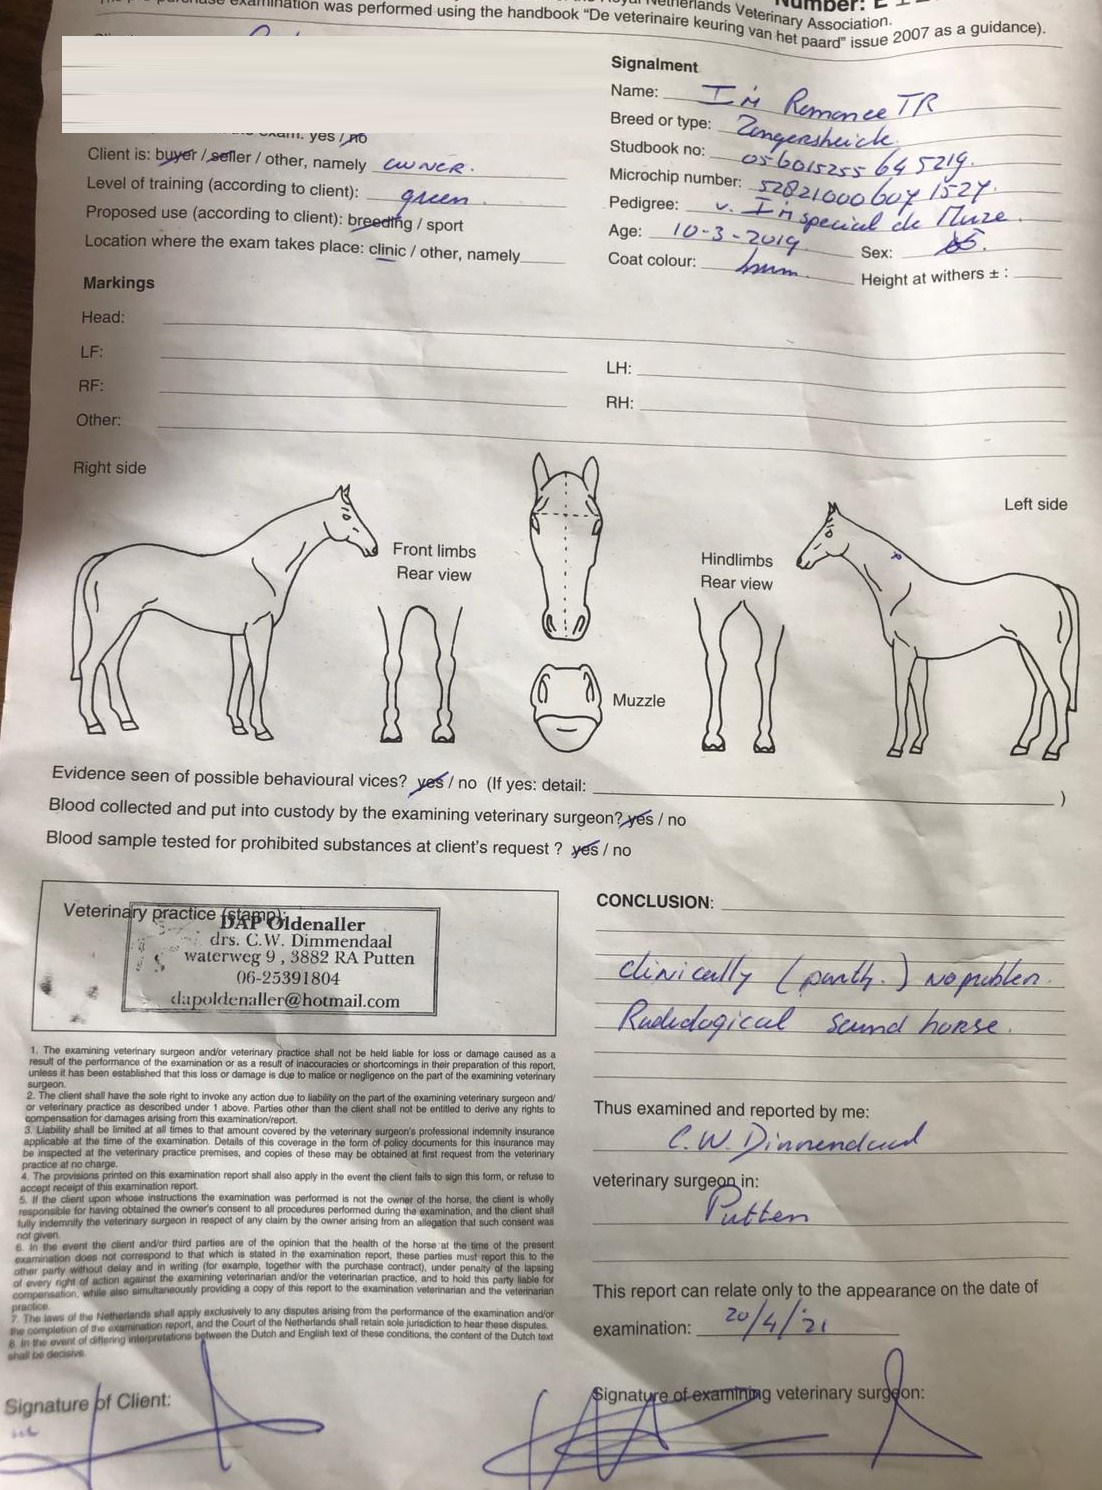 examination was performed using the handbook "De veterinaire keuring van het paard" issue 2007 as a guidance).
Netherlands Veterinary Association.
Number: E
exam: yes / no
Client is: buyer / seller / other, namely owner.
Level of training (according to client): green
Proposed use (according to client): breeding / sport
Location where the exam takes place: clinic / other, namely
Signalment
Name: I'm Romance TR
Breed or type: Zangersheide
Studbook no: 056015255 64 5219.
Microchip number:
Pedigree: v. I'm special de Muze
Age: 10-3-2019 Sex:
Coat colour: bruin Height at withers ± :
Markings
Head:
LF:
LH:
RF:
RH:
Other:
Right side
Left side
Front limbs
Rear view
Hindlimbs
Rear view
Muzzle
Evidence seen of possible behavioural vices? yes / no (If yes: detail: )
Blood collected and put into custody by the examining veterinary surgeon? yes / no
Blood sample tested for prohibited substances at client's request ? yes / no
Veterinary practice (stamp):
DAP Oldenaller
drs. C.W. Dimmendaal
waterweg 9 , 3882 RA Putten
06-25391804
dapoldenaller@hotmail.com
1. The examining veterinary surgeon and/or veterinary practice shall not be held liable for loss or damage caused as a
result of the performance of the examination or as a result of inaccuracies or shortcomings in their preparation of this report,
unless it has been established that this loss or damage is due to malice or negligence on the part of the examining veterinary
surgeon.
2. The client shall have the sole right to invoke any action due to liability on the part of the examining veterinary surgeon and/
or veterinary practice as described under 1 above. Parties other than the client shall not be entitled to derive any rights to
compensation for damages arising from this examination/report.
3. Liability shall be limited at all times to that amount covered by the veterinary surgeon's professional indemnity insurance
applicable at the time of the examination. Details of this coverage in the form of policy documents for this insurance may
be inspected at the veterinary practice premises, and copies of these may be obtained at first request from the veterinary
practice at no charge.
4. The provisions printed on this examination report shall also apply in the event the client fails to sign this form, or refuse to
accept receipt of this examination report.
5. If the client upon whose instructions the examination was performed is not the owner of the horse, the client is wholly
responsible for having obtained the owner's consent to all procedures performed during the examination, and the client shall
fully indemnify the veterinary surgeon in respect of any claim by the owner arising from an allegation that such consent was
not given.
6. In the event the client and/or third parties are of the opinion that the health of the horse at the time of the present
examination does not correspond to that which is stated in the examination report, these parties must report this to the
other party without delay and in writing (for example, together with the purchase contract), under penalty of the lapsing
of every right of action against the examining veterinarian and/or the veterinarian practice, and to hold this party liable for
compensation, while also simultaneously providing a copy of this report to the examination veterinarian and the veterinarian
practice.
7. The laws of the Netherlands shall apply exclusively to any disputes arising from the performance of the examination and/or
the completion of the examination report, and the Court of the Netherlands shall retain sole jurisdiction to hear these disputes.
8. In the event of differing interpretations between the Dutch and English text of these conditions, the content of the Dutch text
shall be decisive.
Signature of Client:
CONCLUSION:
clinically (parth.) no problem.
Radiological sound horse.
Thus examined and reported by me:
C.W. Dimmendaal
veterinary surgeon in:
Putten
This report can relate only to the appearance on the date of
examination: 20/4/'21
Signature of examining veterinary surgeon: